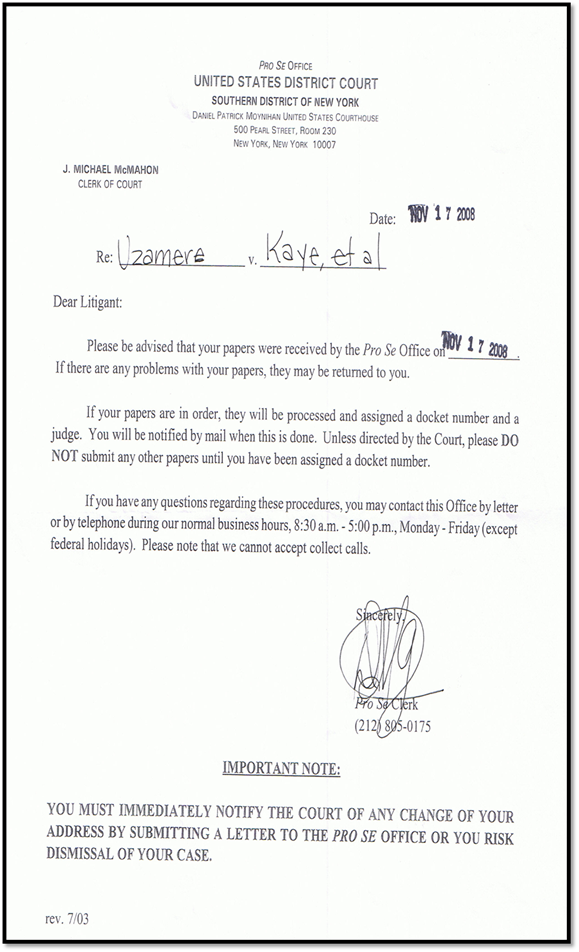 PRO SE OFFICE
UNITED STATES DISTRICT COURT
SOUTHERN DISTRICT OF NEW YORK
DANIEL PATRICK MOYNIHAN UNITED STATES COURTHOUSE
500 PEARL STREET, ROOM 230
NEW YORK, NEW YORK 10007
J. MICHAEL MCMAHON
CLERK OF COURT
Date: NOV 17 2008
Re: Uzamere v. Kaye, et al
Dear Litigant:
Please be advised that your papers were received by the Pro Se Office on NOV 17 2008.
If there are any problems with your papers, they may be returned to you.
If your papers are in order, they will be processed and assigned a docket number and a
judge. You will be notified by mail when this is done. Unless directed by the Court, please DO
NOT submit any other papers until you have been assigned a docket number.
If you have any questions regarding these procedures, you may contact this Office by letter
or by telephone during our normal business hours, 8:30 a.m. - 5:00 p.m., Monday - Friday (except
federal holidays). Please note that we cannot accept collect calls.
Sincerely,
Pro Se Clerk
(212) 805-0175
IMPORTANT NOTE:
YOU MUST IMMEDIATELY NOTIFY THE COURT OF ANY CHANGE OF YOUR
ADDRESS BY SUBMITTING A LETTER TO THE PRO SE OFFICE OR YOU RISK
DISMISSAL OF YOUR CASE.
rev. 7/03